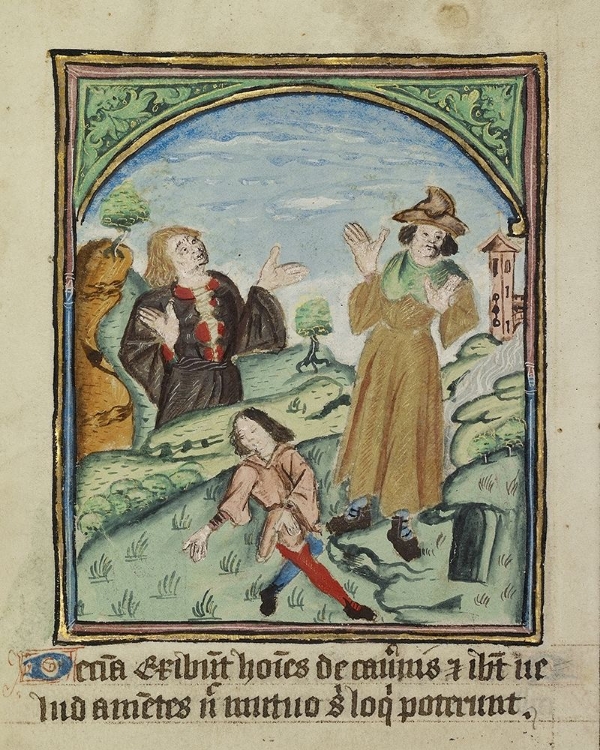 Decīa Exibūt hoīes de cauīnis ⁊ ibt̄ ue
lud amētes n̄ mutuo s̄ loq̄ poterunt.